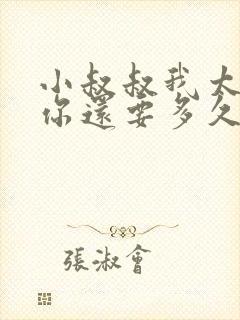 小叔叔我大
你還要多久
張淑會